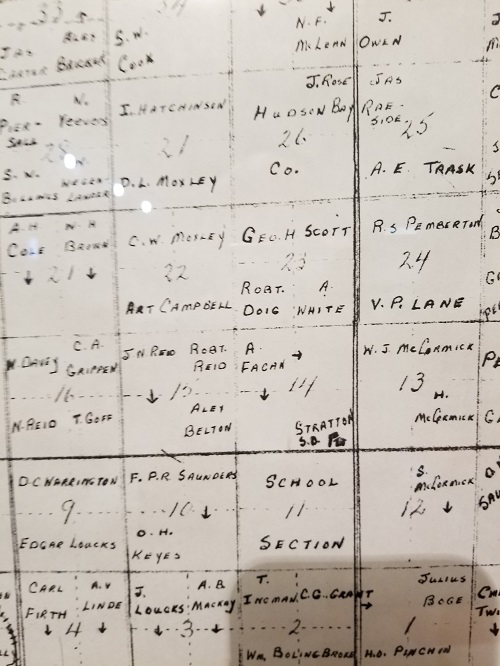 33
34
JAS
ALEX
CARTER
S.W.
COOK
N. F.
McLEAN
J.
OWEN
R.
N.
PIER-
SALL
YEEVOUS
28
S. N.
BILLINGS LANDER
I. HATCHINSON
D.L. MOXLEY
J. ROSE
HUDSON BAY
26
Co.
JAS
RAE-
SIDE
25
A. E. TRASK
A. H
W. H
COLE
BROWN
21
C. W. MOXLEY
22
ART CAMPBELL
GEO. H SCOTT
23
ROBT. A.
DOIG WHITE
R.S PEMBERTON
24
V. P. LANE
W DAVEY
C. A.
GRIPPEN
16
N. REID T. GOFF
J N REID ROBT.
REID
15
ALEX
BELTON
A.
FAGAN →
14
STRATTON
S.D.
W. J. McCORMICK
13
H.
McCORMICK
D.C WARRINGTON
9
EDGAR LOUCKS
F. P. R SAUNDERS
10
O. H.
KEYES
SCHOOL
11
SECTION
S.
McCORMICK
12
CARL
A.V
FIRTH
LINDE
4
J.
A. B.
LOUCKS MACKAY
3
T.
INGMAN C.G. GRANT
2
WM. BOLINGBROKE
JULIUS
BOGE
1
H.O. PINCHIN